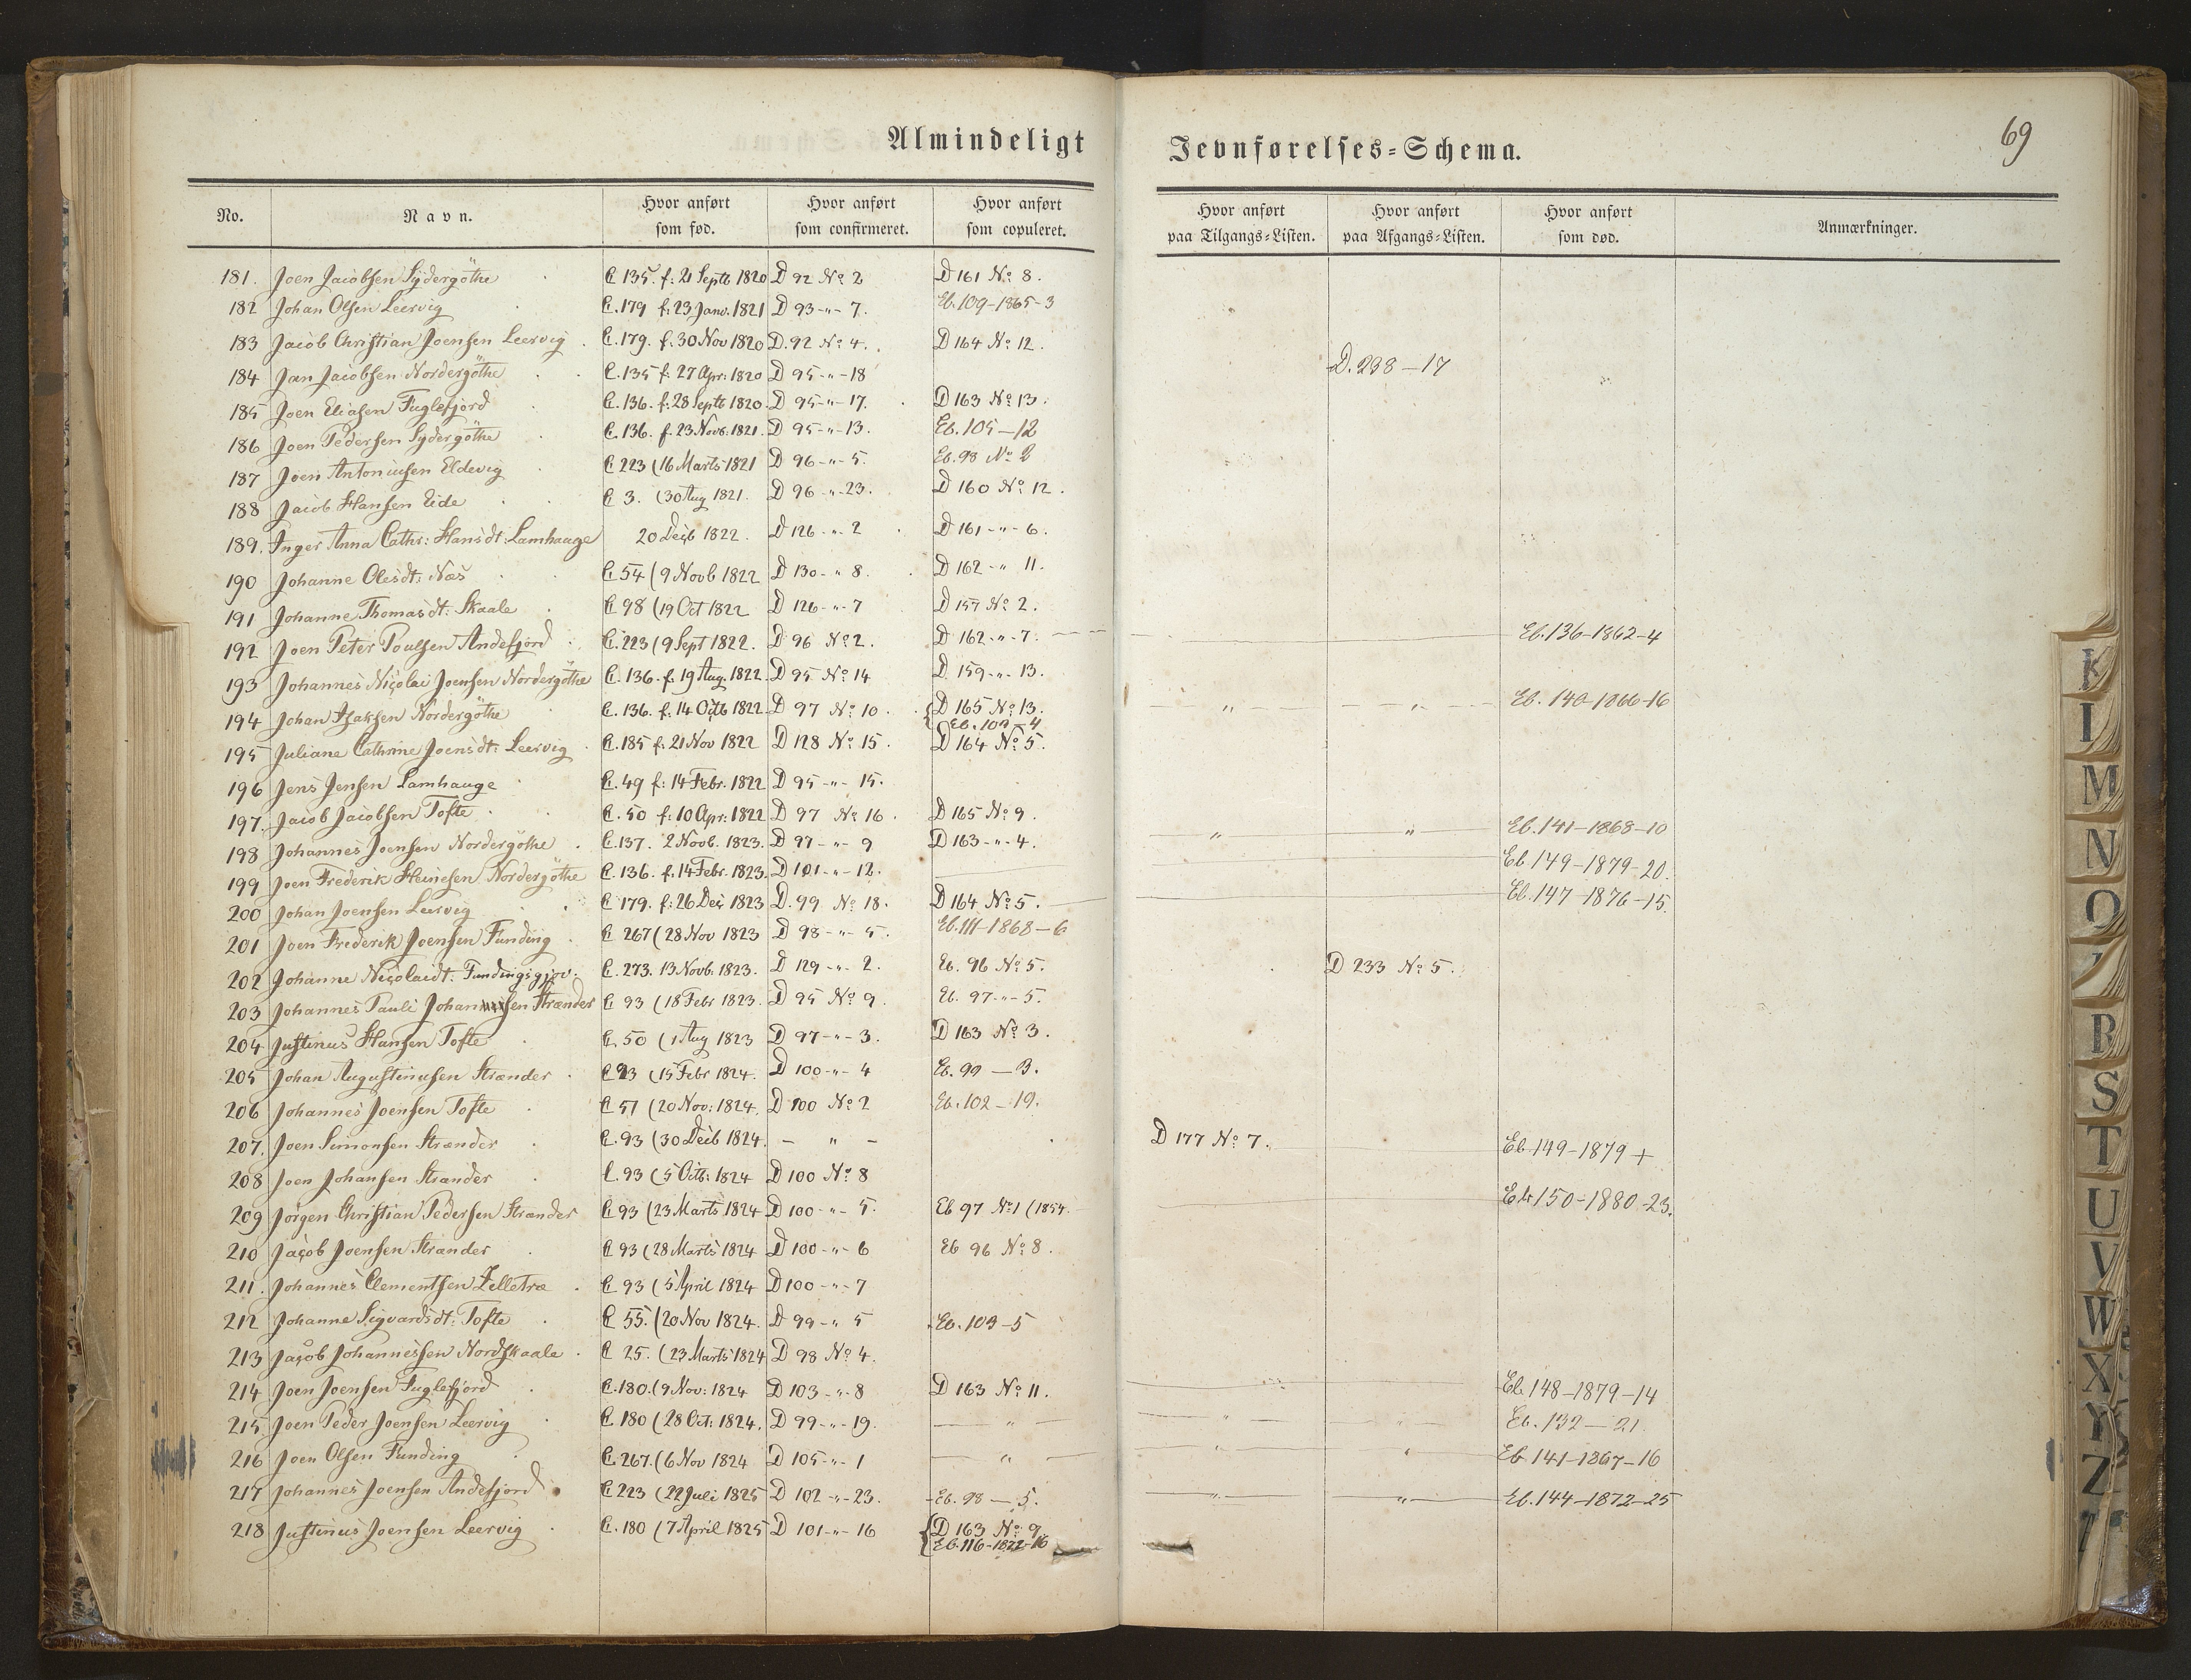 Almindeligt Jevnførelses-Schema. 69
No. Navn. Hvor anført som fød. Hvor anført som confirmeret. Hvor anført som copuleret. Hvor anført paa Tilgangs-Listen. Hvor anført paa Afgangs-Listen. Hvor anført som død. Anmærkninger.
181. Joen Jacobsen Sydergöthe C 135. f: 21 Septb 1820 D 92 No 2 D 161 No 8.
182 Johan Olsen Leervig C. 179 f: 23 Janv. 1821 D 93 -"- 7. Eb. 109-1865-3
183 Jacob Christian Joensen Leervig C. 179. f. 30 Nov 1820 D. 92 No 4. D 164 No 12.
184 Jan Jacobsen Nordergöthe C. 135 f: 27 Apr: 1820 D 95 -"- 18 D. 238 - 17
185 Joen Eliasen Fuglefjord C. 136. f: 28 Septb 1820. D 95 -"- 17. D 163 No 13.
186 Joen Pedersen Sydergöthe C. 136. f. 23 Novb: 1821. D 95 -"- 13. Eb. 105 - 12
187 Joen Antoniusen Eldevig C 223 (16 Marts 1821 D 96 -"- 5. Eb. 98 No 2
188 Jacob Hansen Eide C 3. (30 Aug 1821. D 96 -"- 23. D 160 No 12.
189. Inger Anna Cathr: Hansdt: Lamhauge 20 Decb 1822. D 126 -"- 2 D 161 -"- 6.
190 Johanne Olesdt: Næs C 54 (9 Novb 1822 D 130 -" 8. D 162 -" 11.
191 Johanne Thomasdt: Skaale C 98 (19 Oct 1822 D 126 -"- 7 D 157 No 2.
192 Joen Peter Poulsen Andefjord C. 223 (9 Sept 1822. D 96 No 2. D 162 -"- 7. Eb. 136-1862-4
193 Johannes Nicolai Joensen Nordergöthe C. 136. f. 19 Aug. 1822. D 95 No 14 D 159 -"- 13.
194 Johan Isaksen Nordergöthe C. 136. f. 14 Octb 1822. D 97 No 10. { D 165 No 13. " " Eb. 140-1866-16
Eb. 109 - 4
195 Juliane Cathrine Joensdt: Leervig C. 185 f: 21 Nov 1822 D 128 No 15. D 164 No 5.
196 Jens Jensen Lamhauge C. 49 f: 14 Febr. 1822 D 95 -"- 15.
197. Jacob Jacobsen Tofte C. 50 f: 10 Apr: 1822 D 97 No 16. D 165 No 9.
198 Johannes Joensen Nordergöthe C. 137. 2 Novb. 1823. D 97 -"- 9 D 163 -"- 4. " " Eb. 141-1868-10
199 Joen Frederik Heinesen Nordergöthe C. 136. f. 14 Febr. 1823. D 101 -"- 12. Eb. 149-1879-20.
200 Johan Joensen Leervig C 179. f: 26 Dec 1823 D. 99 No 18. D 164 No 5. Eb. 147-1876-15.
201 Joen Frederik Joensen Funding C 267 (28 Nov 1823 D 98 -"- 5. Eb. 111-1868-6
202 Johanne Nicolaidt: Fundingsgjov: C. 273. 13 Novb. 1823. D 129 -"- 2. Eb. 96 No 5. D 233 No 5.
203 Johannes Pauli Johansen Strænder C 93 (18 Febr 1823. D 95 No 9. Eb. 97 -"- 5.
204 Justinus Hansen Tofte C. 50 (1 Aug 1823 D 97 -"- 3. D 163 No 3.
205 Johan Augustinusen Strænder C 93 (15 Febr 1824. D 100 -"- 4 Eb. 99 - 3.
206 Johannes Joensen Tofte C 51 (20 Nov: 1824. D 100 No 2 Eb. 102 - 19.
207. Joen Simonsen Strænder C. 93 (30 Decb 1824. - " - D 177 No 7. Eb 149-1879 +
208 Joen Johansen Strænder C. 93 (5 Octb: 1824 D 100 No 8
209 Jørgen Christian Pedersen Strænder C 93 (23 Marts 1824 D 100 -"- 5. Eb 97 No 1 (1854. Eb 150-1880-23.
210 Jacob Joensen Strænder C 93 (28 Marts 1824 D 100 -"- 6 Eb 96 No 8.
211. Johannes Clementsen Selletræ C 93 (5 April 1824 D 100 -"- 7
212 Johanne Sigvardsdt: Tofte C 55. (20 Nov 1824. D 99 -" 5 Eb. 103-5
213 Jacob Johannessen Nordskaale C 25. (23 Marts 1824 D 98 No 4.
214 Joen Joensen Fuglefjord C. 180. (9 Nov: 1824 D 103 -"- 8 D 163 No 11. Eb. 148-1879-14
215 Joen Peder Joensen Leervig C. 180 (28 Oct: 1824. D 99 -"- 19. " " " Eb. 132 - 21.
216 Joen Olsen Funding C. 267. (6 Nov 1824 D 105 -"- 1 " " " Eb 141-1867-16
217 Johannes Joensen Andefjord C 223 (22 Juli 1825 D 102 -"- 23. Eb. 98 - 5. " " Eb. 144-1872-25
218 Justinus Joensen Leervig C. 180 (7 April 1825 D 101 -"- 16 { D 163 No 9.
Eb. 116-1872-16
K
L
M
N
O
R
S
T
U
V
W
X
Y
Z